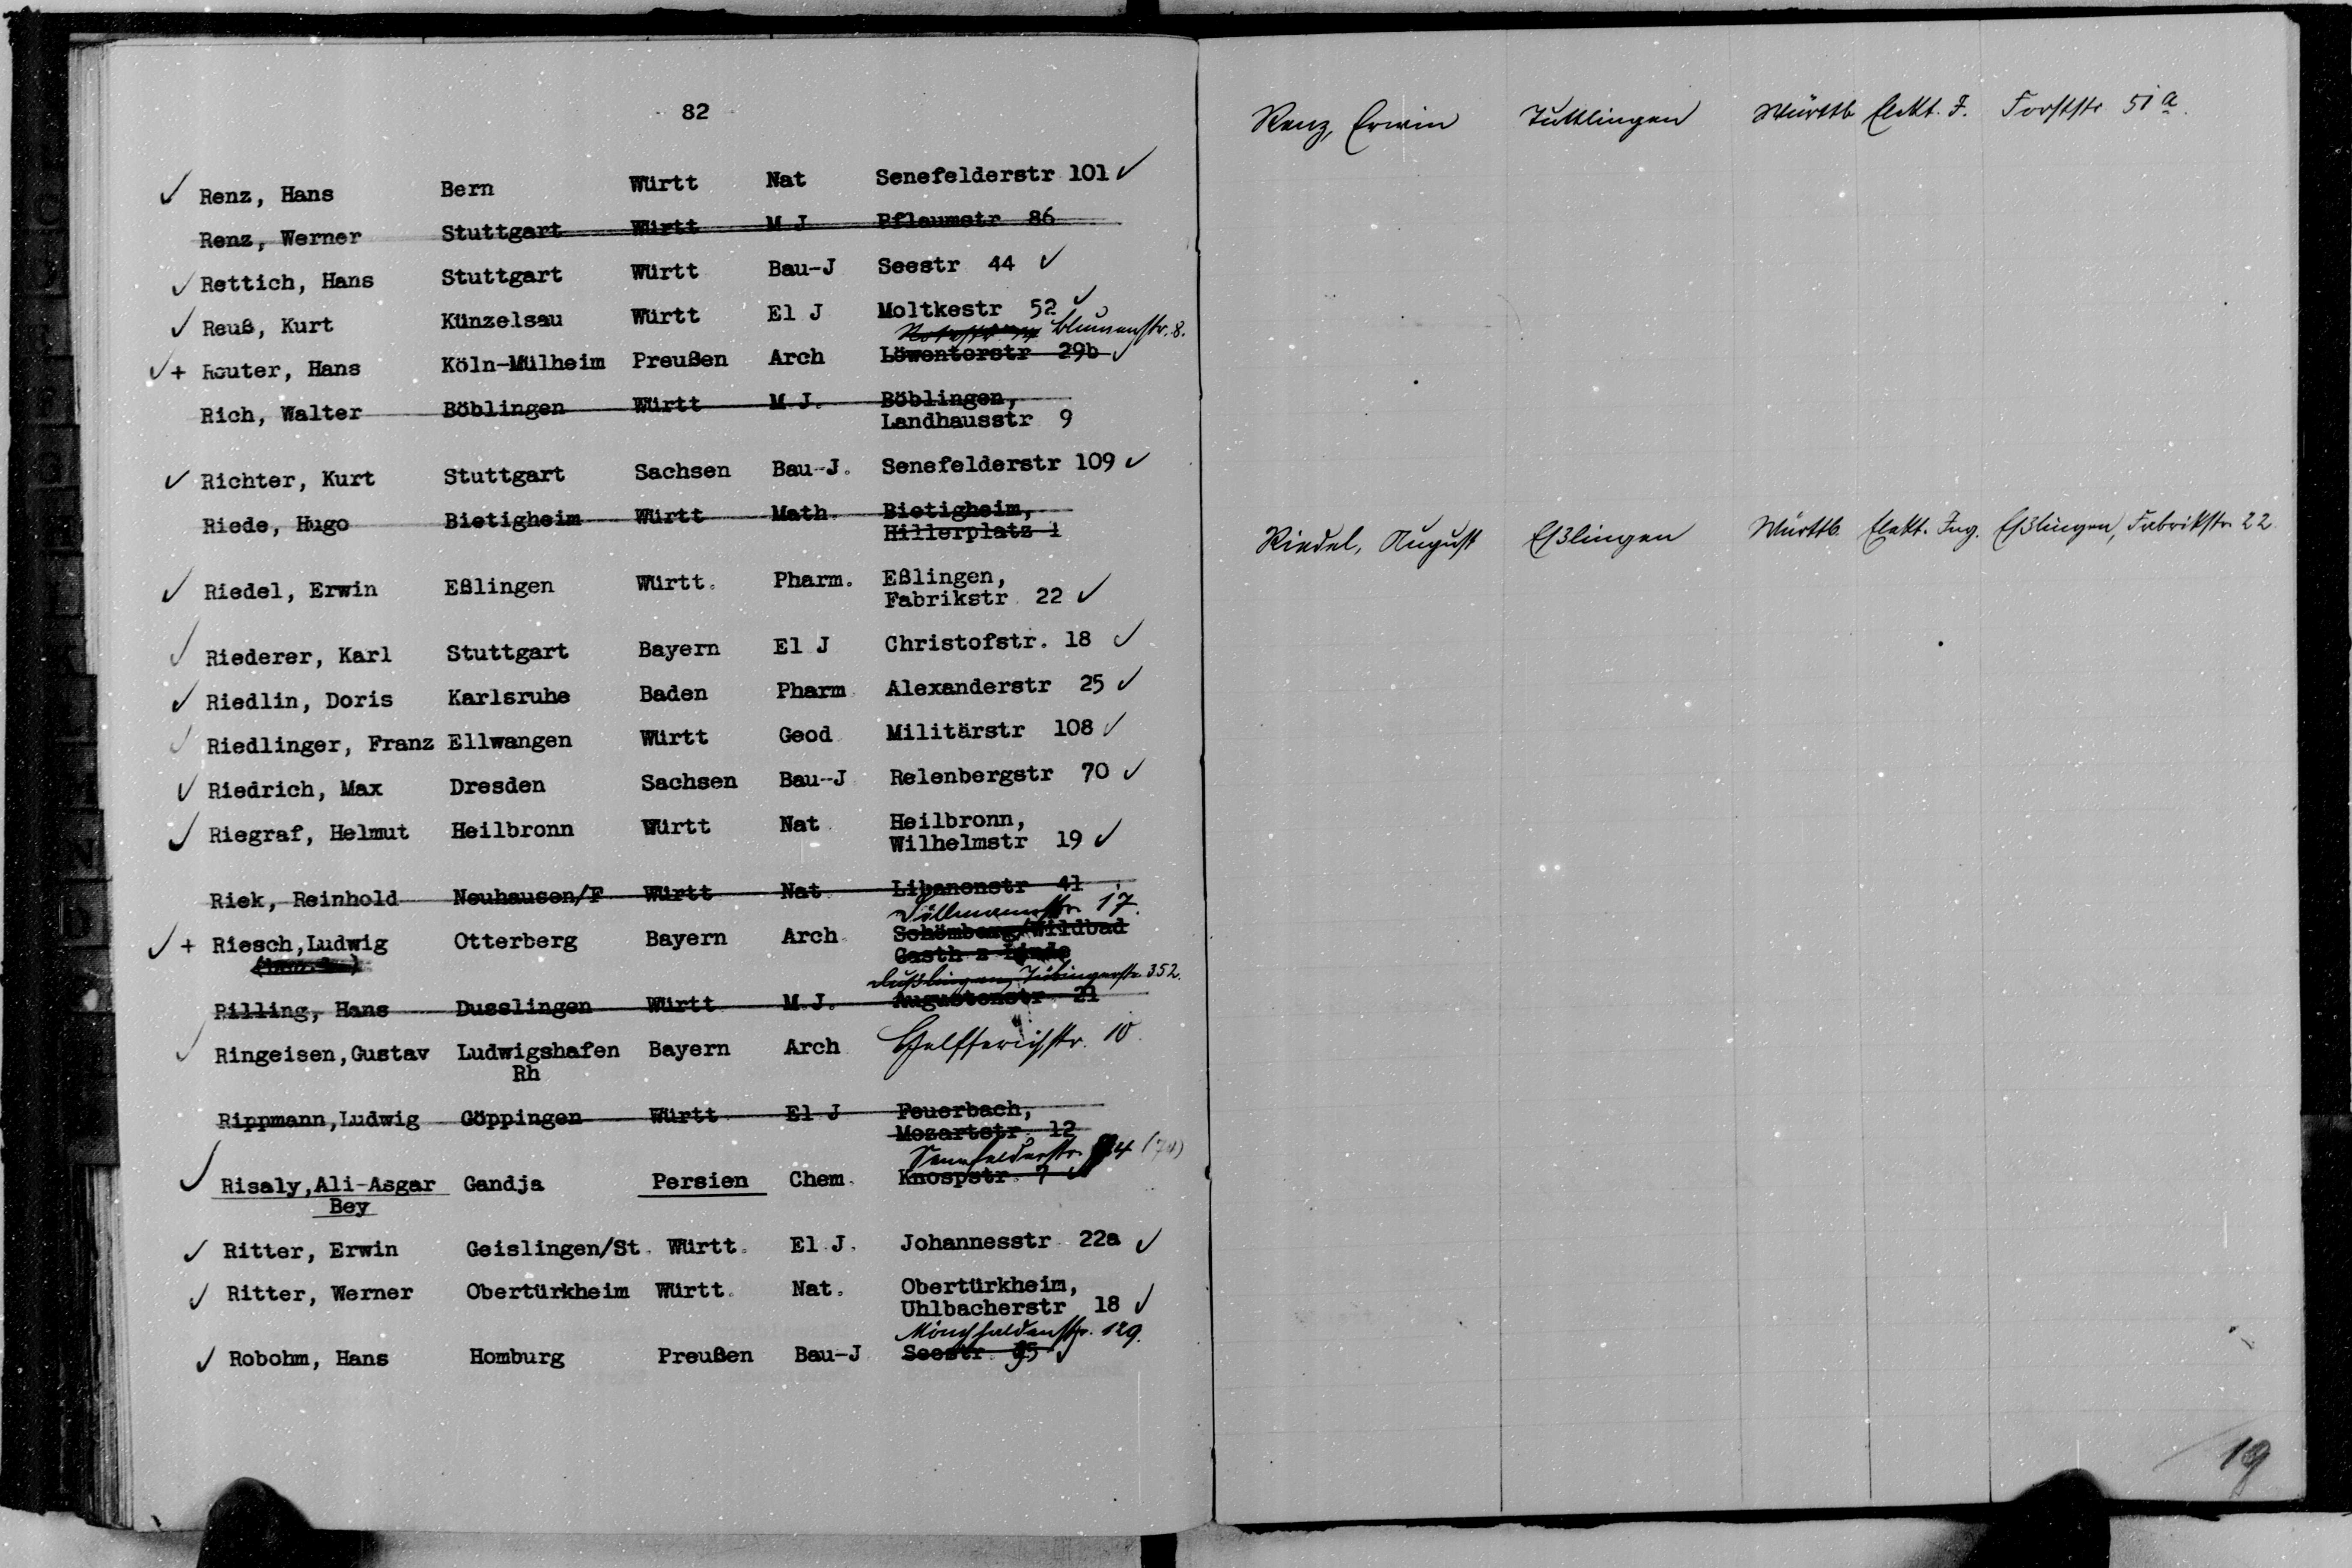 82
✓ Renz, Hans Bern Württ Nat Senefelderstr 101 ✓
Renz, Werner Stuttgart Württ M J Pflaumstr 86
✓ Rettich, Hans Stuttgart Württ Bau-J Seestr 44 ✓
✓ Reuß, Kurt Künzelsau Württ El J Moltkestr 52 ✓
Blumenstr. 8.
✓ + Reuter, Hans Köln-Mülheim Preußen Arch Löwentorstr 29b ✓
Rich, Walter Böblingen Württ M J. Böblingen,
Landhausstr 9
✓ Richter, Kurt Stuttgart Sachsen Bau-J. Senefelderstr 109 ✓
Riede, Hugo Bietigheim Württ Math. Bietigheim,
Hillerplatz 1
✓ Riedel, Erwin Eßlingen Württ. Pharm. Eßlingen,
Fabrikstr 22 ✓
✓ Riederer, Karl Stuttgart Bayern El J Christofstr. 18 ✓
✓ Riedlin, Doris Karlsruhe Baden Pharm Alexanderstr 25 ✓
✓ Riedlinger, Franz Ellwangen Württ Geod Militärstr 108 ✓
✓ Riedrich, Max Dresden Sachsen Bau-J Relenbergstr 70 ✓
✓ Riegraf, Helmut Heilbronn Württ Nat Heilbronn,
Wilhelmstr 19 ✓
Riek, Reinhold Neuhausen/F Württ Nat Libanonstr 41
17.
✓ + Riesch,Ludwig Otterberg Bayern Arch Schömberg/Wildbad
Gasth z Linde
Dußlingen, Tübingerstr. 352.
Rilling, Hans Dusslingen Württ M.J. Augustenstr 21
✓ Ringeisen,Gustav Ludwigshafen Bayern Arch Helfferichstr. 10.
Rh
Rippmann,Ludwig Göppingen Württ El J Feuerbach,
Mozartstr. 12
Senefelderstr.
✓ Risaly,Ali-Asgar Gandja Persien Chem. Knospstr. 7 ✓
Bey
✓ Ritter, Erwin Geislingen/St. Württ. El J. Johannesstr 22a ✓
✓ Ritter, Werner Obertürkheim Württ. Nat. Obertürkheim,
Uhlbacherstr 18 ✓
Mönchhaldenstr. 129.
✓ Robohm, Hans Homburg Preußen Bau-J Seestr. 95 ✓
Renz, Erwin Tuttlingen Württb Elekt. J. Forststr 51a.
Riedel, August Eßlingen Württb. Elekt. Ing. Eßlingen, Fabrikstr. 22
19